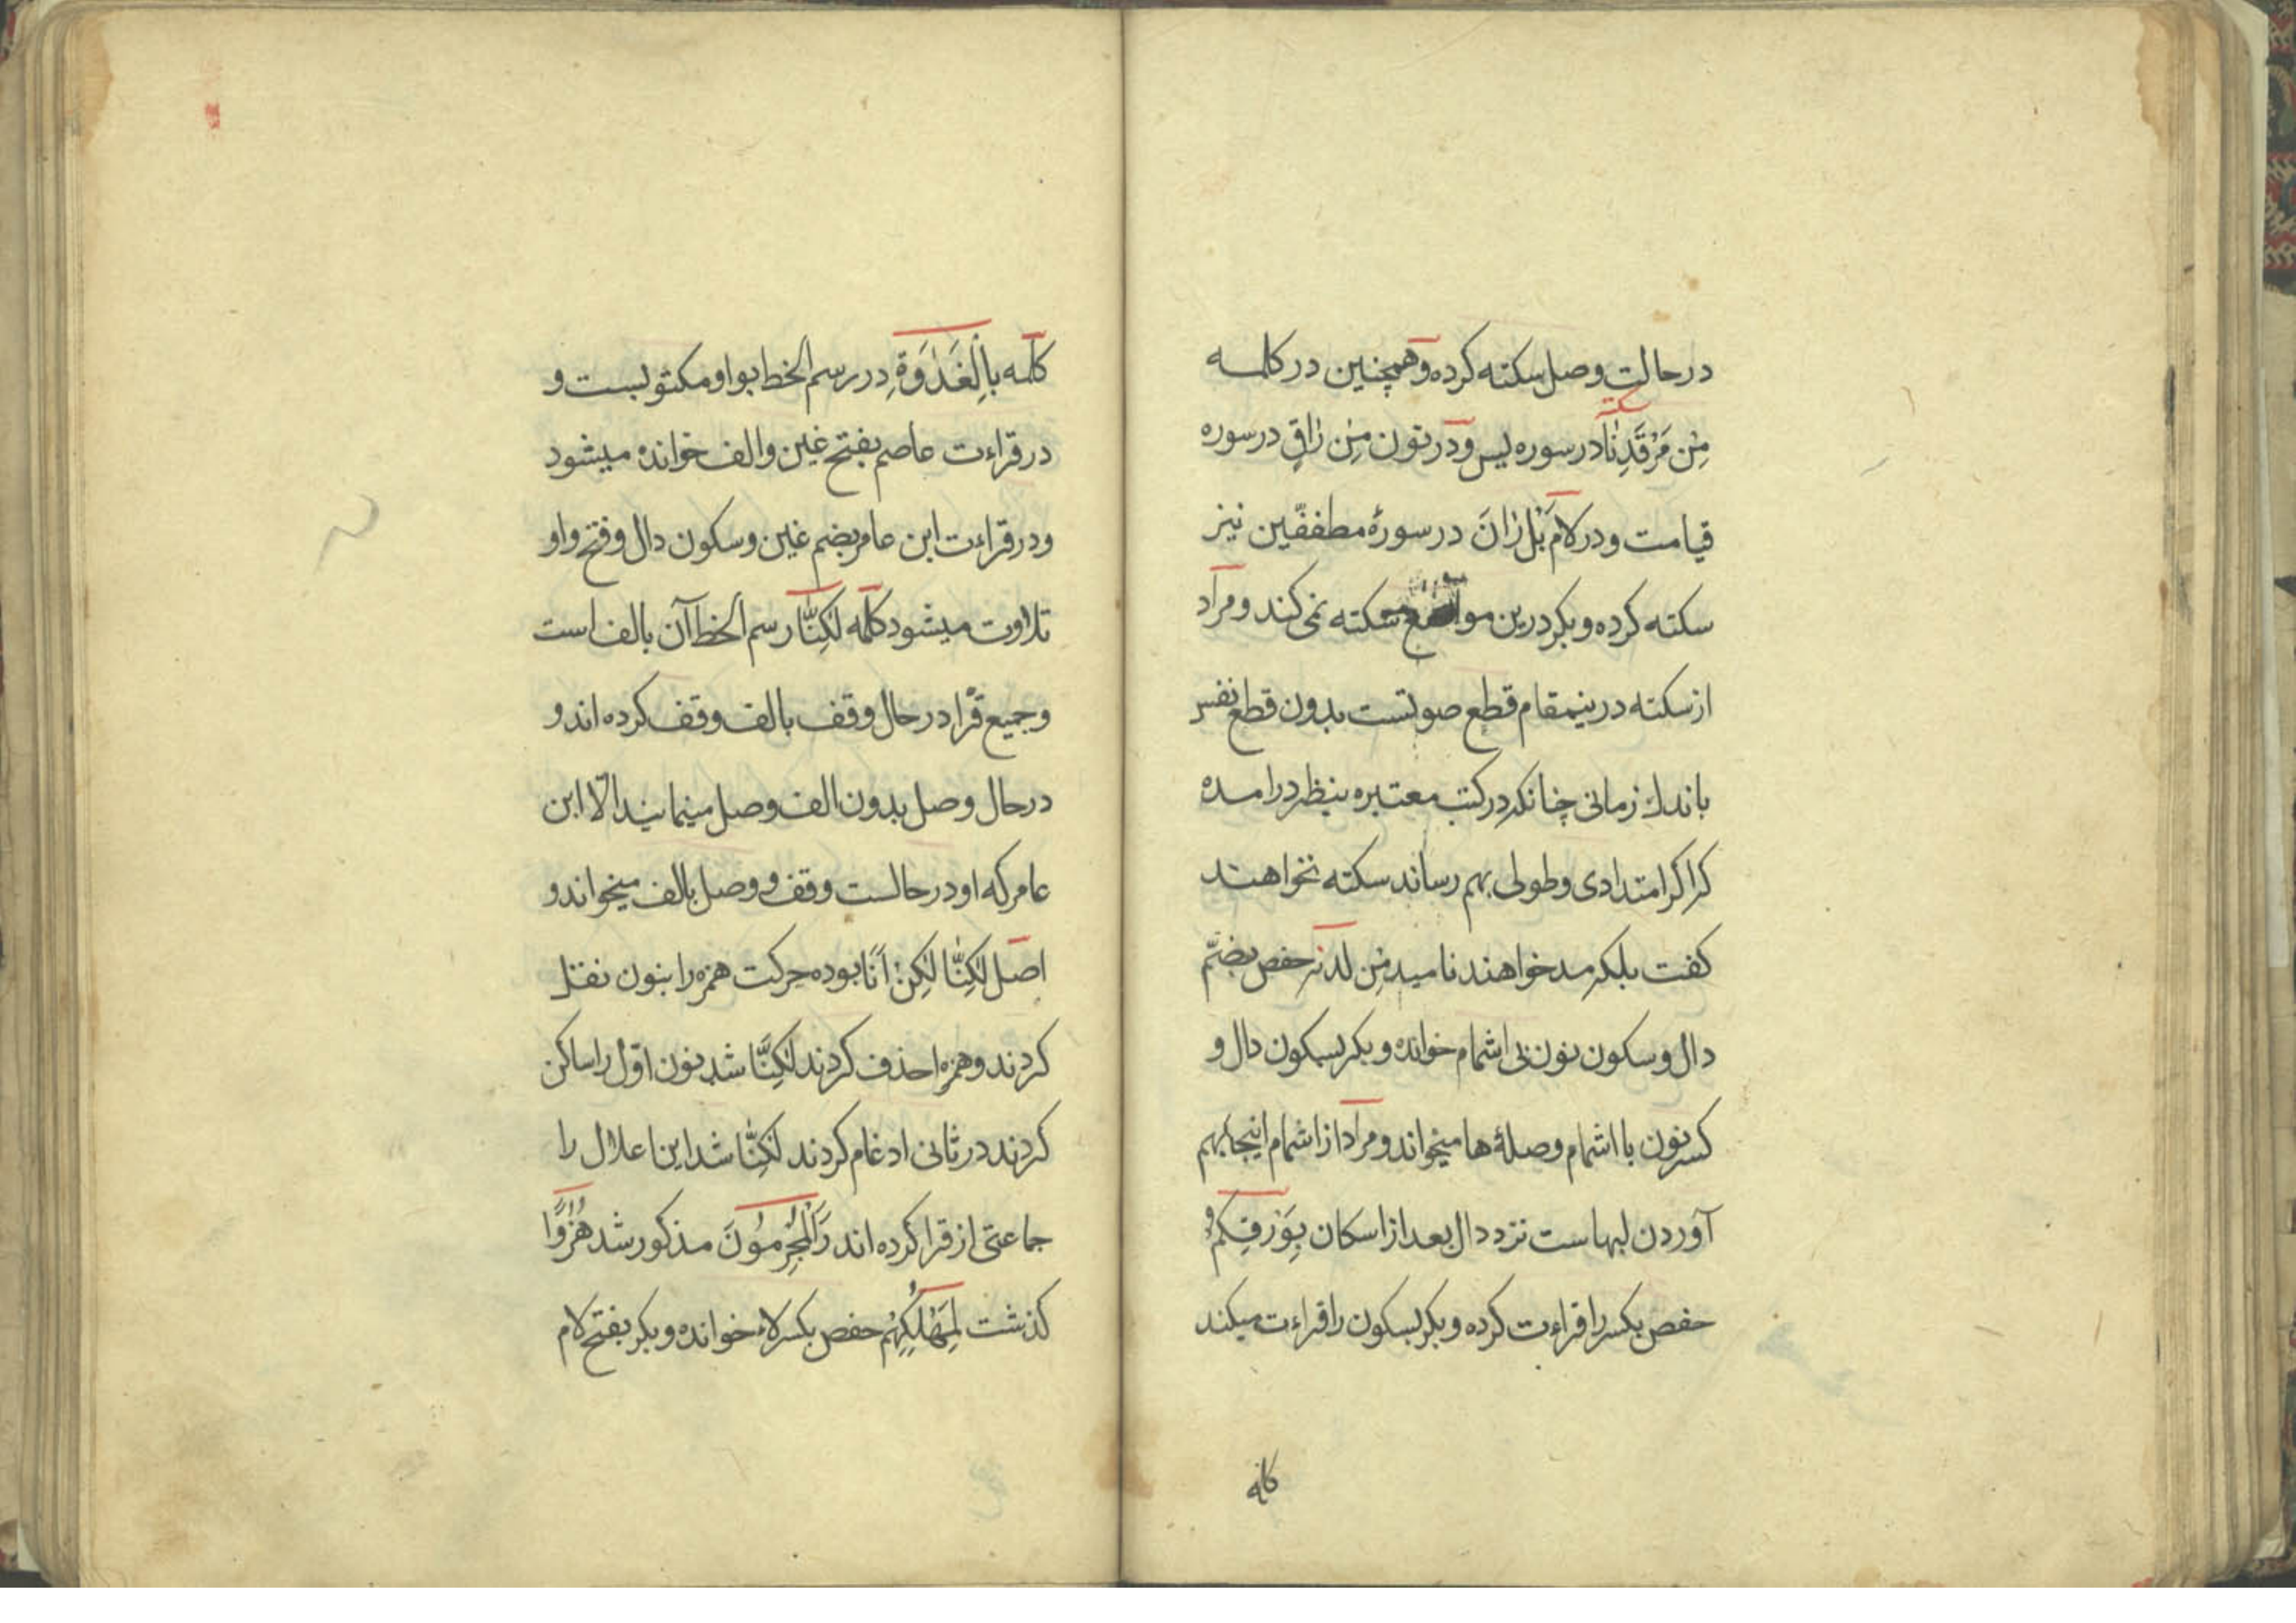 درحالت وصل سکته کرده وهمچنین در کلمه
مِنْ مَرْقَدِنَا درسوره یس ودر نون مِنْ رٰاقٍ درسوره
قیامت ودر لام بَلْ رٰانَ درسورهٔ مطففّین نیز
سکته کرده وبکر درین مواضع سکته نمی کند ومراد
از سکته درینمقام قطع صوتست بدون قطع نفس
باندك زمانی چنانکه در کتب معتبره بنظر درامده
که اکر امتدادی وطولی بهم رساند سکته نخواهند
کفت بلکه مد خواهند نامید مِنْ لدنه حفص بضمّ
دال وسکون نون بی اشمام خوانده وبکر بسکون دال و
کسر نون با اشمام وصلهٔ ها میخواند ومراد از اشمام اینجا بهم
آوردن لبهاست نزد دال بعد از اسکان بِوَرِقِکُمْ
حفص بکسر را قراءت کرده وبکر بسکون را قراءت میکند
کلمه
کلمه بِالْغَدٰوَةِ در رسم الخط بواو مکتوبست و
در قراءت عاصم بفتح غین والف خوانده میشود
ودر قراءت ابن عامر بضم غین وسکون دال وفتح واو
تلاوت میشود کلمه لٰکِنَّا رسم الخط آن بالف است
وجمیع قرّا درحال وقف بالف وقف کرده اند و
درحال وصل بدون الف وصل مینمایند الّا ابن
عامر که او درحالت وقف و وصل بالف میخواند و
اصل لٰکِنَّا لٰکِنْ اَنَا بوده حرکت همزه را بنون نقل
کردند وهمزه را حذف کردند لٰکِنَنَا شد نون اوّل را ساکن
کردند در ثانی ادغام کردند لٰکِنَّا شد این اعلال را
جماعتی از قرا کرده اند رَاَلْمُجْرِمُونَ مذکور شد هُزُوًا
کذشت لِمَهْلِکِهِمْ حفص بکسر لام خوانده وبکر بفتح لام